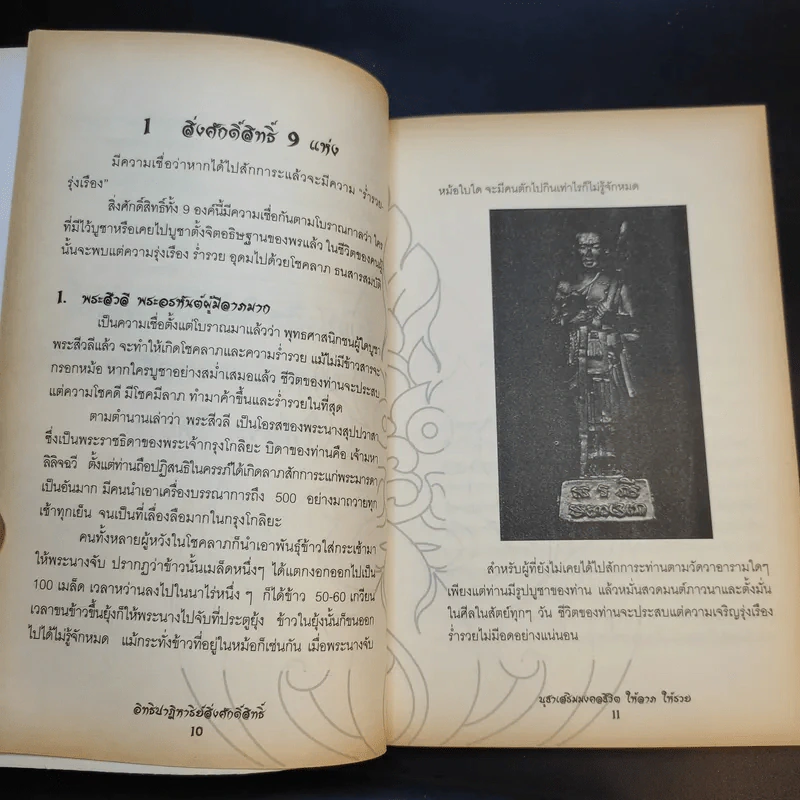 1 สิ่งศักดิ์สิทธิ์ 9 แห่ง
มีความเชื่อว่าหากได้ไปสักการะแล้วจะมีความ "ร่ำรวย
รุ่งเรือง"
สิ่งศักดิ์สิทธิ์ทั้ง 9 องค์นี้มีความเชื่อกันตามโบราณกาลว่า ใคร
ที่มีไว้บูชาหรือเคยไปบูชาตั้งจิตอธิษฐานของพรแล้ว ในชีวิตของคนผู้
นั้นจะพบแต่ความรุ่งเรือง ร่ำรวย อุดมไปด้วยโชคลาภ ธนสารสมบัติ
1. พระสีวลี พระอรหันต์ผู้มีลาภมาก
เป็นความเชื่อตั้งแต่โบราณมาแล้วว่า พุทธศาสนิกชนผู้ใดบูชา
พระสีวลีแล้ว จะทำให้เกิดโชคลาภและความร่ำรวย แม้ไม่มีข้าวสารจะ
กรอกหม้อ หากใครบูชาอย่างสม่ำเสมอแล้ว ชีวิตของท่านจะประสบ
แต่ความโชคดี มีโชคมีลาภ ทำมาค้าขึ้นและร่ำรวยในที่สุด
ตามตำนานเล่าว่า พระสีวลี เป็นโอรสของพระนางสุปปวาสา
ซึ่งเป็นพระราชธิดาของพระเจ้ากรุงโกลิยะ บิดาของท่านคือ เจ้ามหา
ลิลิจฉวี ตั้งแต่ท่านถือปฏิสนธิในครรภ์ได้เกิดลาภสักการะแก่พระมารดา
เป็นอันมาก มีคนนำเอาเครื่องบรรณาการถึง 500 อย่างมาถวายทุก
เช้าทุกเย็น จนเป็นที่เลื่องลือมากในกรุงโกลิยะ
คนทั้งหลายผู้หวังในโชคลาภก็นำเอาพันธุ์ข้าวใส่กระเช้ามา
ให้พระนางจับ ปรากฏว่าข้าวนั้นเมล็ดหนึ่งๆ ได้แตกงอกออกไปเป็น
100 เมล็ด เวลาหว่านลงไปในนาไร่หนึ่งๆ ก็ได้ข้าว 50-60 เกวียน
เวลาขนข้าวขึ้นยุ้งก็ให้พระนางไปจับที่ประตูยุ้ง ข้าวในยุ้งนั้นก็ขนออก
ไปได้ไม่รู้จักหมด แม้กระทั่งข้าวที่อยู่ในหม้อก็เช่นกัน เมื่อพระนางจับ
อิทธิปาฏิหาริย์สิ่งศักดิ์สิทธิ์
10
หม้อใบใด จะมีคนตักไปกินเท่าไรก็ไม่รู้จักหมด
สำหรับผู้ที่ยังไม่เคยได้ไปสักการะท่านตามวัดวาอารามใดๆ
เพียงแต่ท่านมีรูปบูชาของท่าน แล้วหมั่นสวดมนต์ภาวนาและตั้งมั่น
ในศีลในสัตย์ทุกๆ วัน ชีวิตของท่านจะประสบแต่ความเจริญรุ่งเรือง
ร่ำรวยไม่มีอดอย่างแน่นอน
บูชาเสริมมงคลชีวิต ให้ลาภ ให้รวย
11